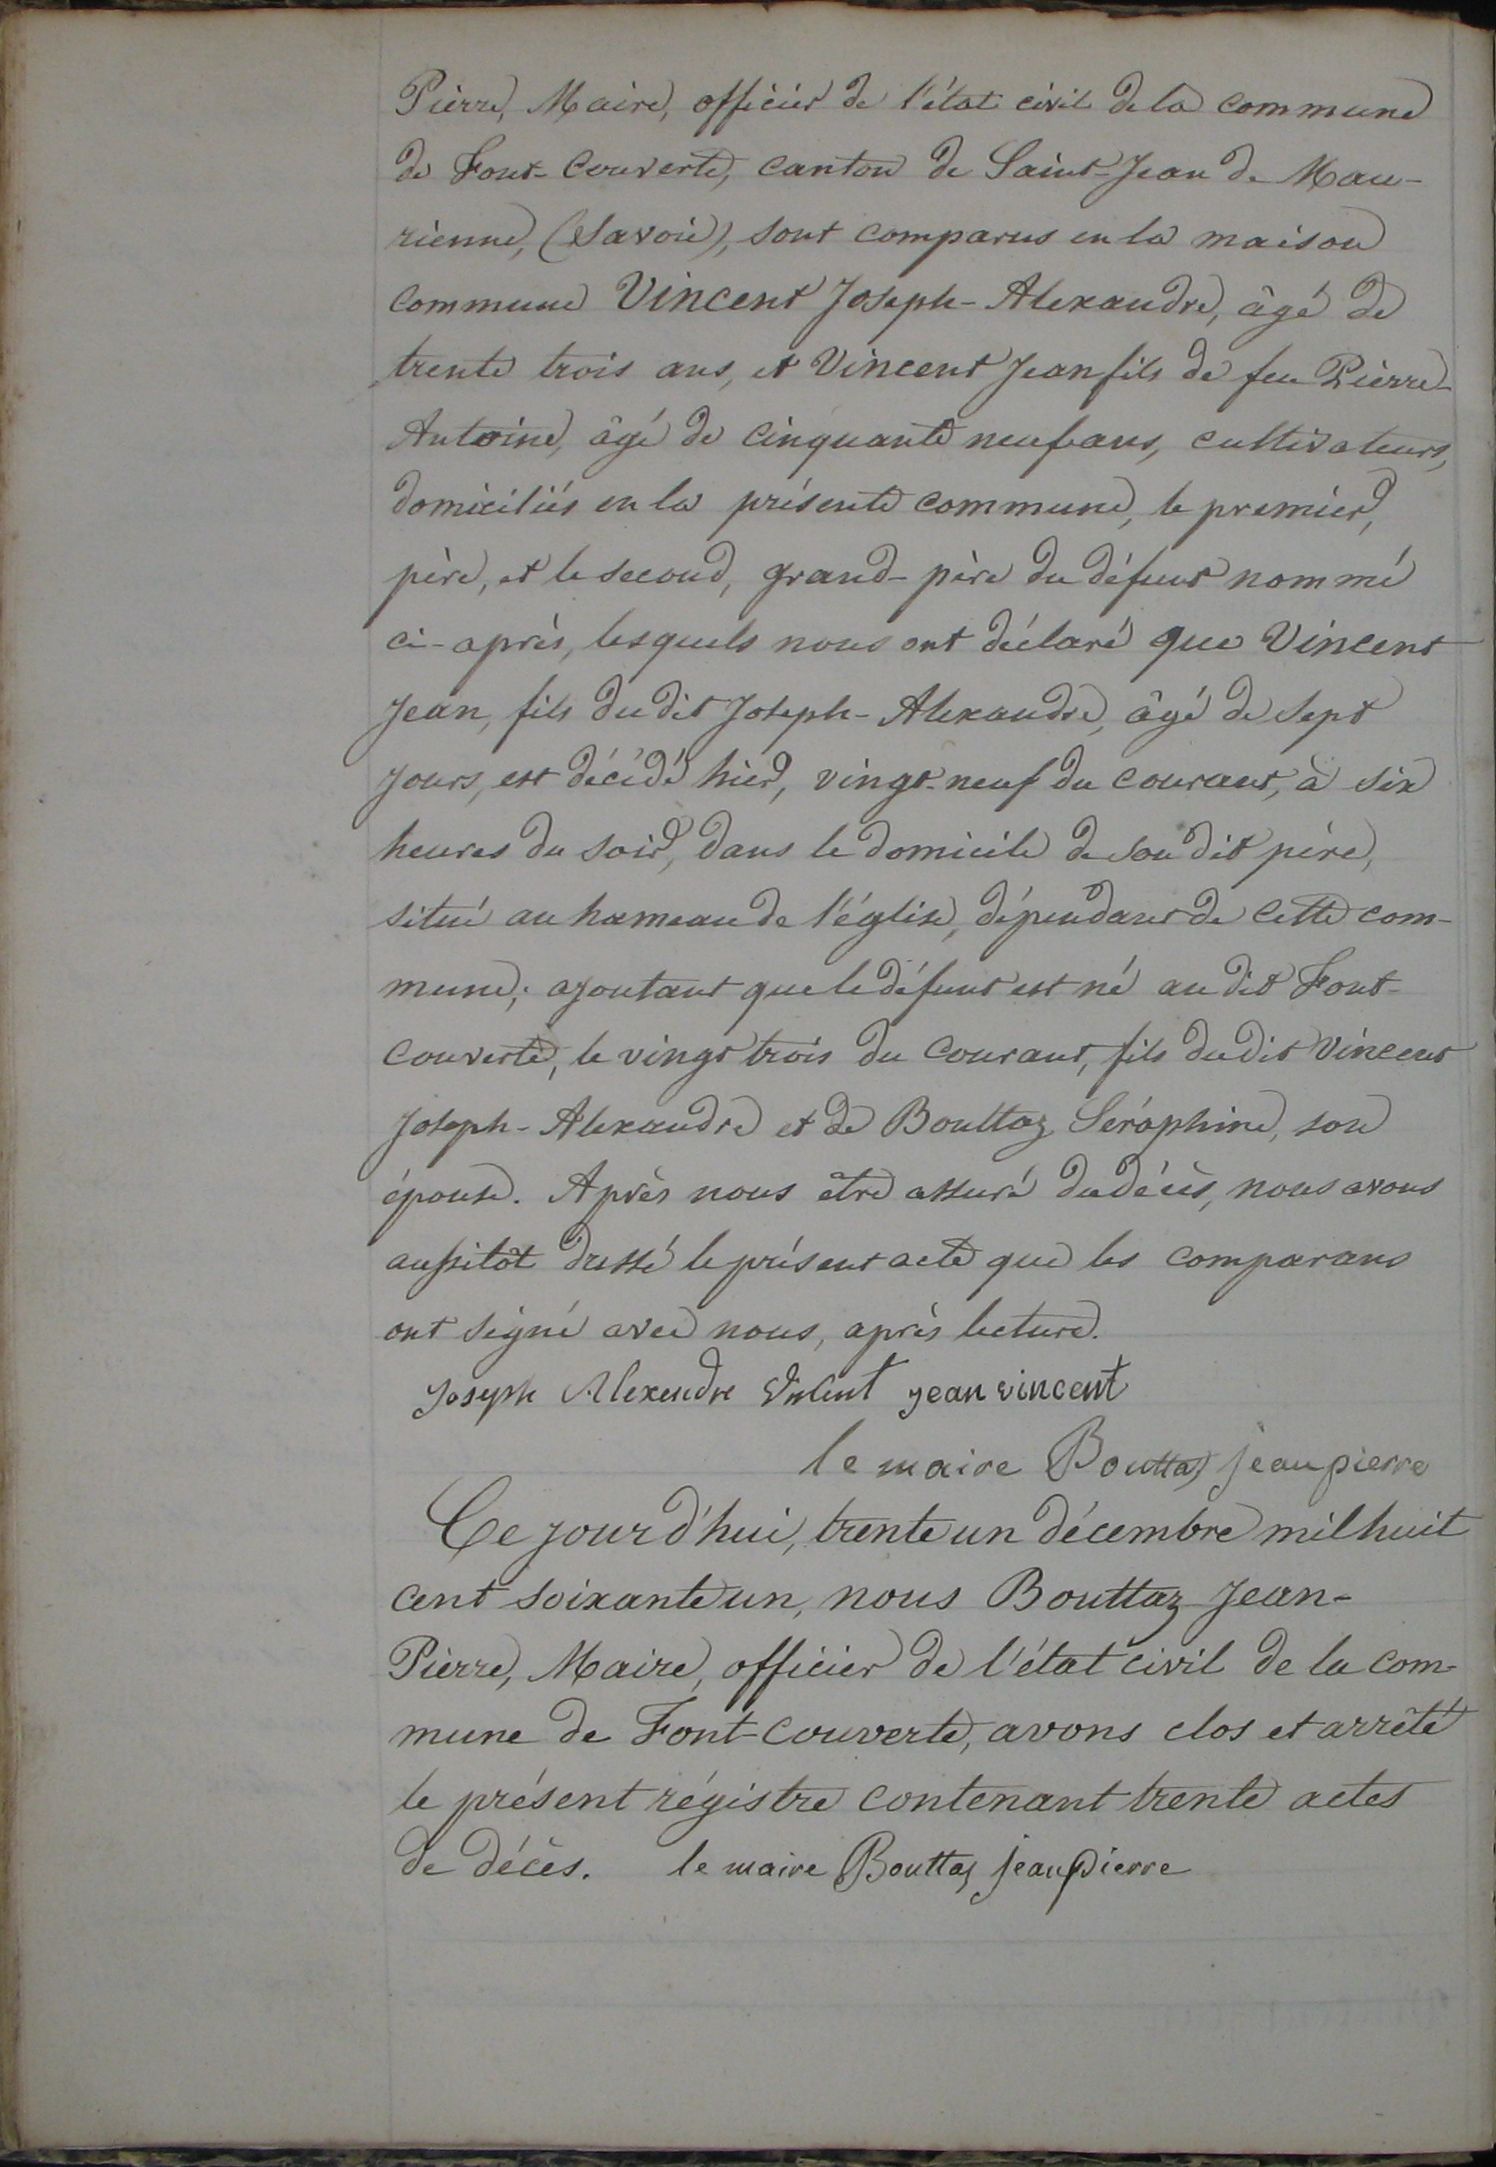 Pierre, Maire, officier de l'état civil de la commune
de Font-Couverte, canton de Saint-Jean de Mau-
rienne, (Savoie), sont comparus en la maison
commune Vincent Joseph-Alexandre, âgé de
trente trois ans, et Vincent Jean fils de feu Pierre-
Antoine, âgé de cinquante neuf ans, cultivateurs,
domiciliés en la présente commune, le premier,
père, et le second, grand-père du défunt nommé
ci-après, lesquels nous ont déclaré que Vincent
Jean, fils du dit Joseph-Alexandre, âgé de sept
jours, est décédé hier, vingt-neuf du courant, à six
heures du soir, dans le domicile de son dit père,
situé au hameau de l'église, dépendant de cette com-
mune; ajoutant que le défunt est né au dit Font-
couverte, le vingt trois du courant, fils du dit Vincent
Joseph-Alexandre et de Bouttaz Séraphine, son
épouse. Après nous être assuré du décès, nous avons
aussitôt dressé le présent acte que les comparans
ont signé avec nous, après lecture.
Joseph Alexendre Vincent jean vincent
le maire Bouttaz jean pierre
Ce jourd'hui, trente un décembre mil huit
cent soixante un, nous Bouttaz Jean-
Pierre, Maire, officier de l'état civil de la com-
mune de Font-Couverte, avons clos et arrêté
le présent régistre contenant trente actes
de décès. le maire Bouttaz jean pierre